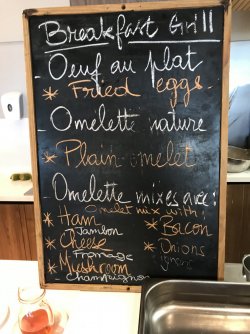 Breakfast Grill
Oeuf au plat
* Fried eggs
Omelette nature
* Plain omelet
Omelette mixes avec:
Omelet mix with:
* Ham
Jambon
* Cheese
Fromage
* Myshroom
Champignon
* Bacon
* Onions